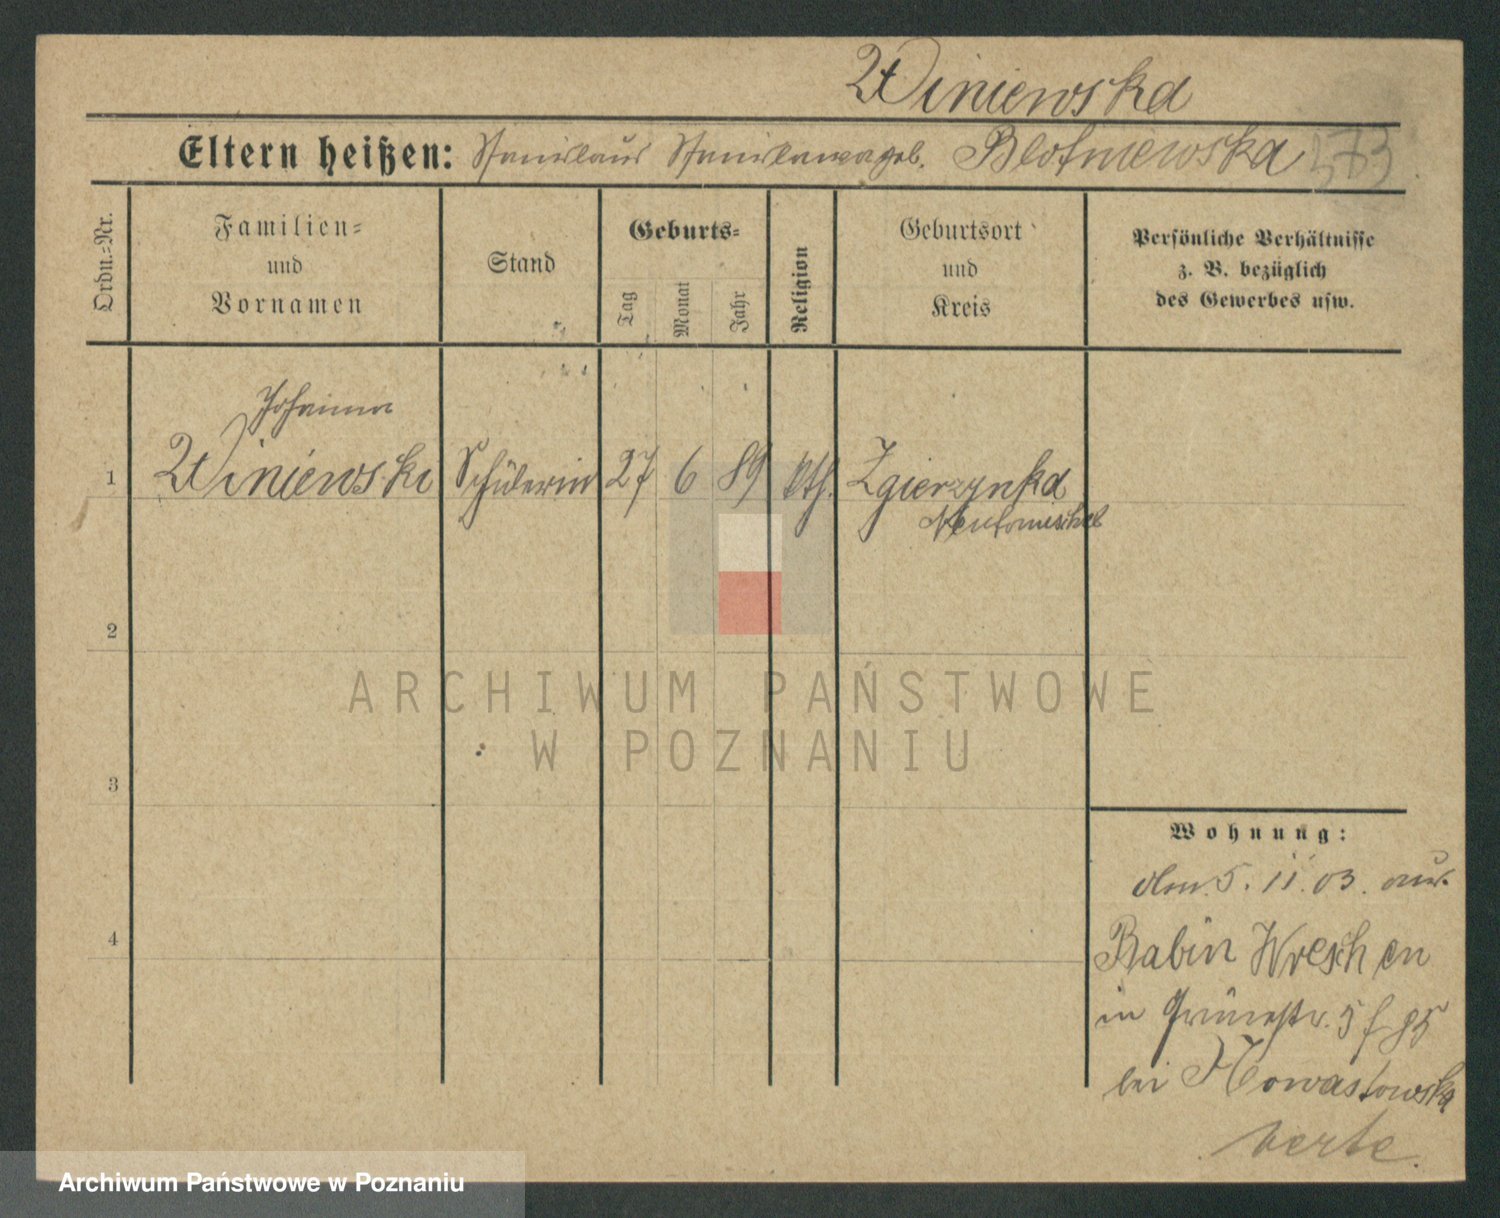 Winiewska
Eltern heißen: Stanislaus Stanislawa geb. Blotniewska 373
Ordn.-Nr.
Familien- und Vornamen
Stand
Geburts-
Tag
Monat
Jahr
Religion
Geburtsort und Kreis
Persönliche Verhältnisse
z. B. bezüglich
des Gewerbes usw.
Johanna
1 Winiewski Schülerin 27 6 89 kth. Zgierzynka
Neutomischel
2
3
4
Wohnung:
Am 5. 11. 03. aus
Babin Wreschen
in Grünestr. 5 f 85
bei Nowastowska
verte.
ARCHIWUM PAŃSTWOWE
W POZNANIU
Archiwum Państwowe w Poznaniu